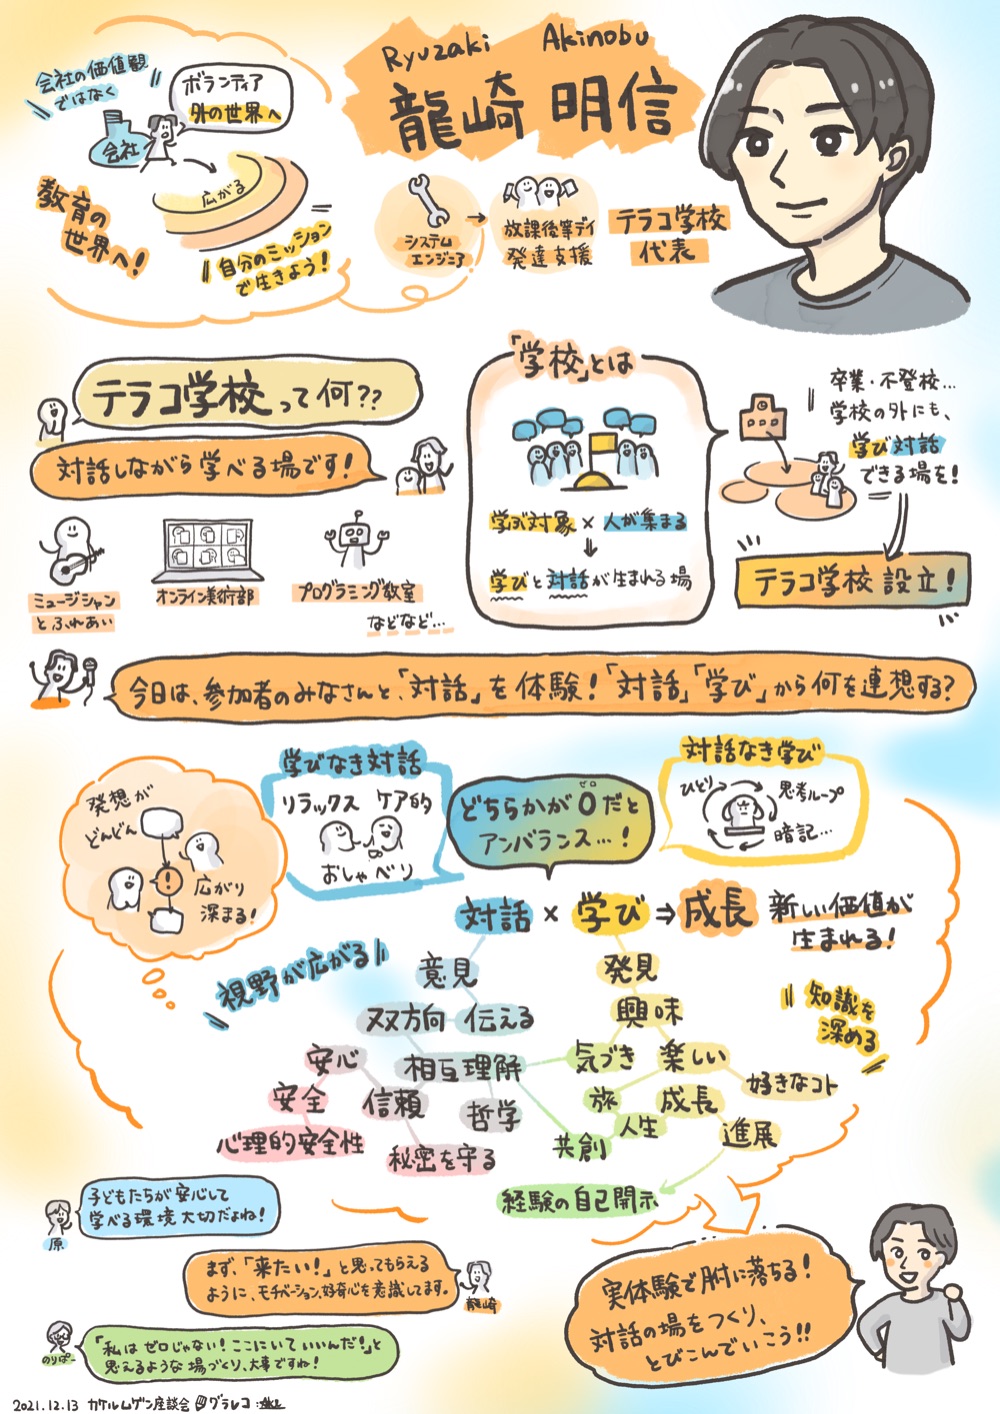 Ryuzaki Akinobu
龍崎 明信
会社の価値観
ではなく
ボランティア
外の世界へ
会社
広がる
教育の
世界へ!
自分のミッション
で生きよう!
システム
エンジニア
放課後等デイ
発達支援
テラコ学校
代表
テラコ学校って何??
対話しながら学べる場です!
ミュージシャン
とふれあい
オンライン美術部
プログラミング教室
などなど…
「学校」とは
学ぶ対象 × 人が集まる
学びと対話が生まれる場
卒業・不登校…
学校の外にも、
学び対話
できる場を!
テラコ学校 設立!
今日は、参加者のみなさんと、「対話」を体験!「対話」「学び」から何を連想する?
発想が
どんどん
!
広がり
深まる!
学びなき対話
リラックス ケア的
おしゃべり
どちらかが0だと
ゼロ
アンバランス…!
対話なき学び
ひとり
思考ループ
暗記…
対話 × 学び ⇒ 成長 新しい価値が
生まれる!
視野が広がる
知識を
深める
意見
発見
双方向 伝える
興味
安心
相互理解
気づき
楽しい
好きなコト
安全
信頼
哲学
旅
成長
人生
進展
心理的安全性
秘密を守る
共創
経験の自己開示
子どもたちが安心して
学べる環境大切だよね!
原
まず、「来たい!」と思ってもらえる
ように、モチベーション、好奇心を意識してます。
龍崎
「私はゼロじゃない!ここにいていいんだ!」と
思えるような場づくり、大事ですね!
のりぱー
実体験で腑に落ちる!
対話の場をつくり、
とびこんでいこう!!
2021.12.13 カケルムゲン座談会 グラレコ: